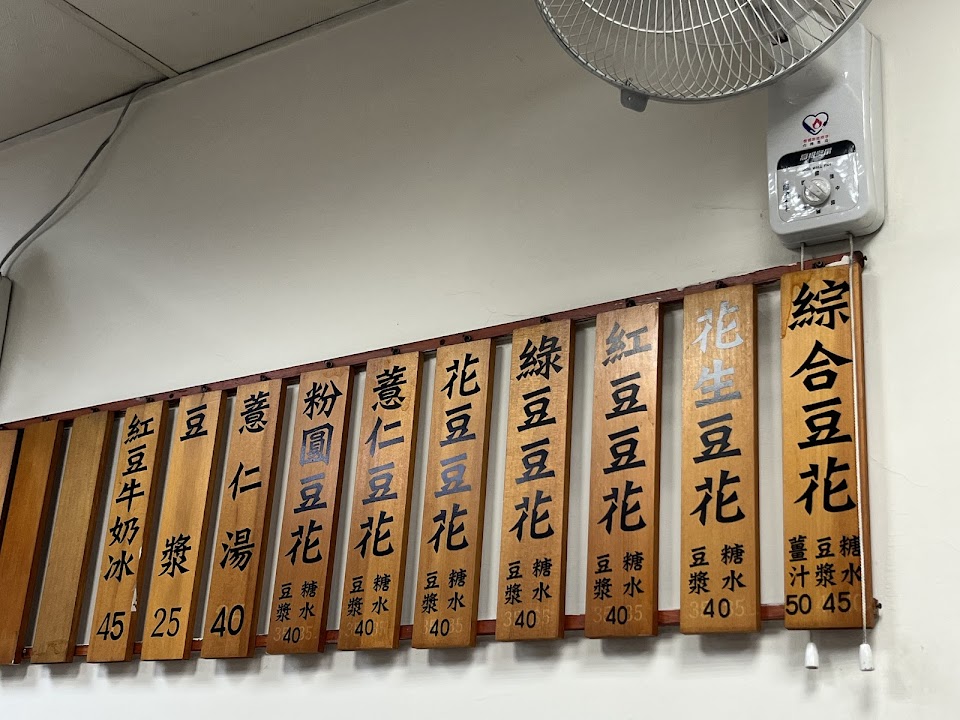 綜合豆花
糖水
豆漿
薑汁
50 45
花生豆花
糖水
豆漿
40
紅豆豆花
糖水
豆漿
40
綠豆豆花
糖水
豆漿
40
花豆豆花
糖水
豆漿
40
薏仁豆花
糖水
豆漿
40
粉圓豆花
糖水
豆漿
40
薏仁湯
40
豆漿
25
紅豆牛奶冰
45